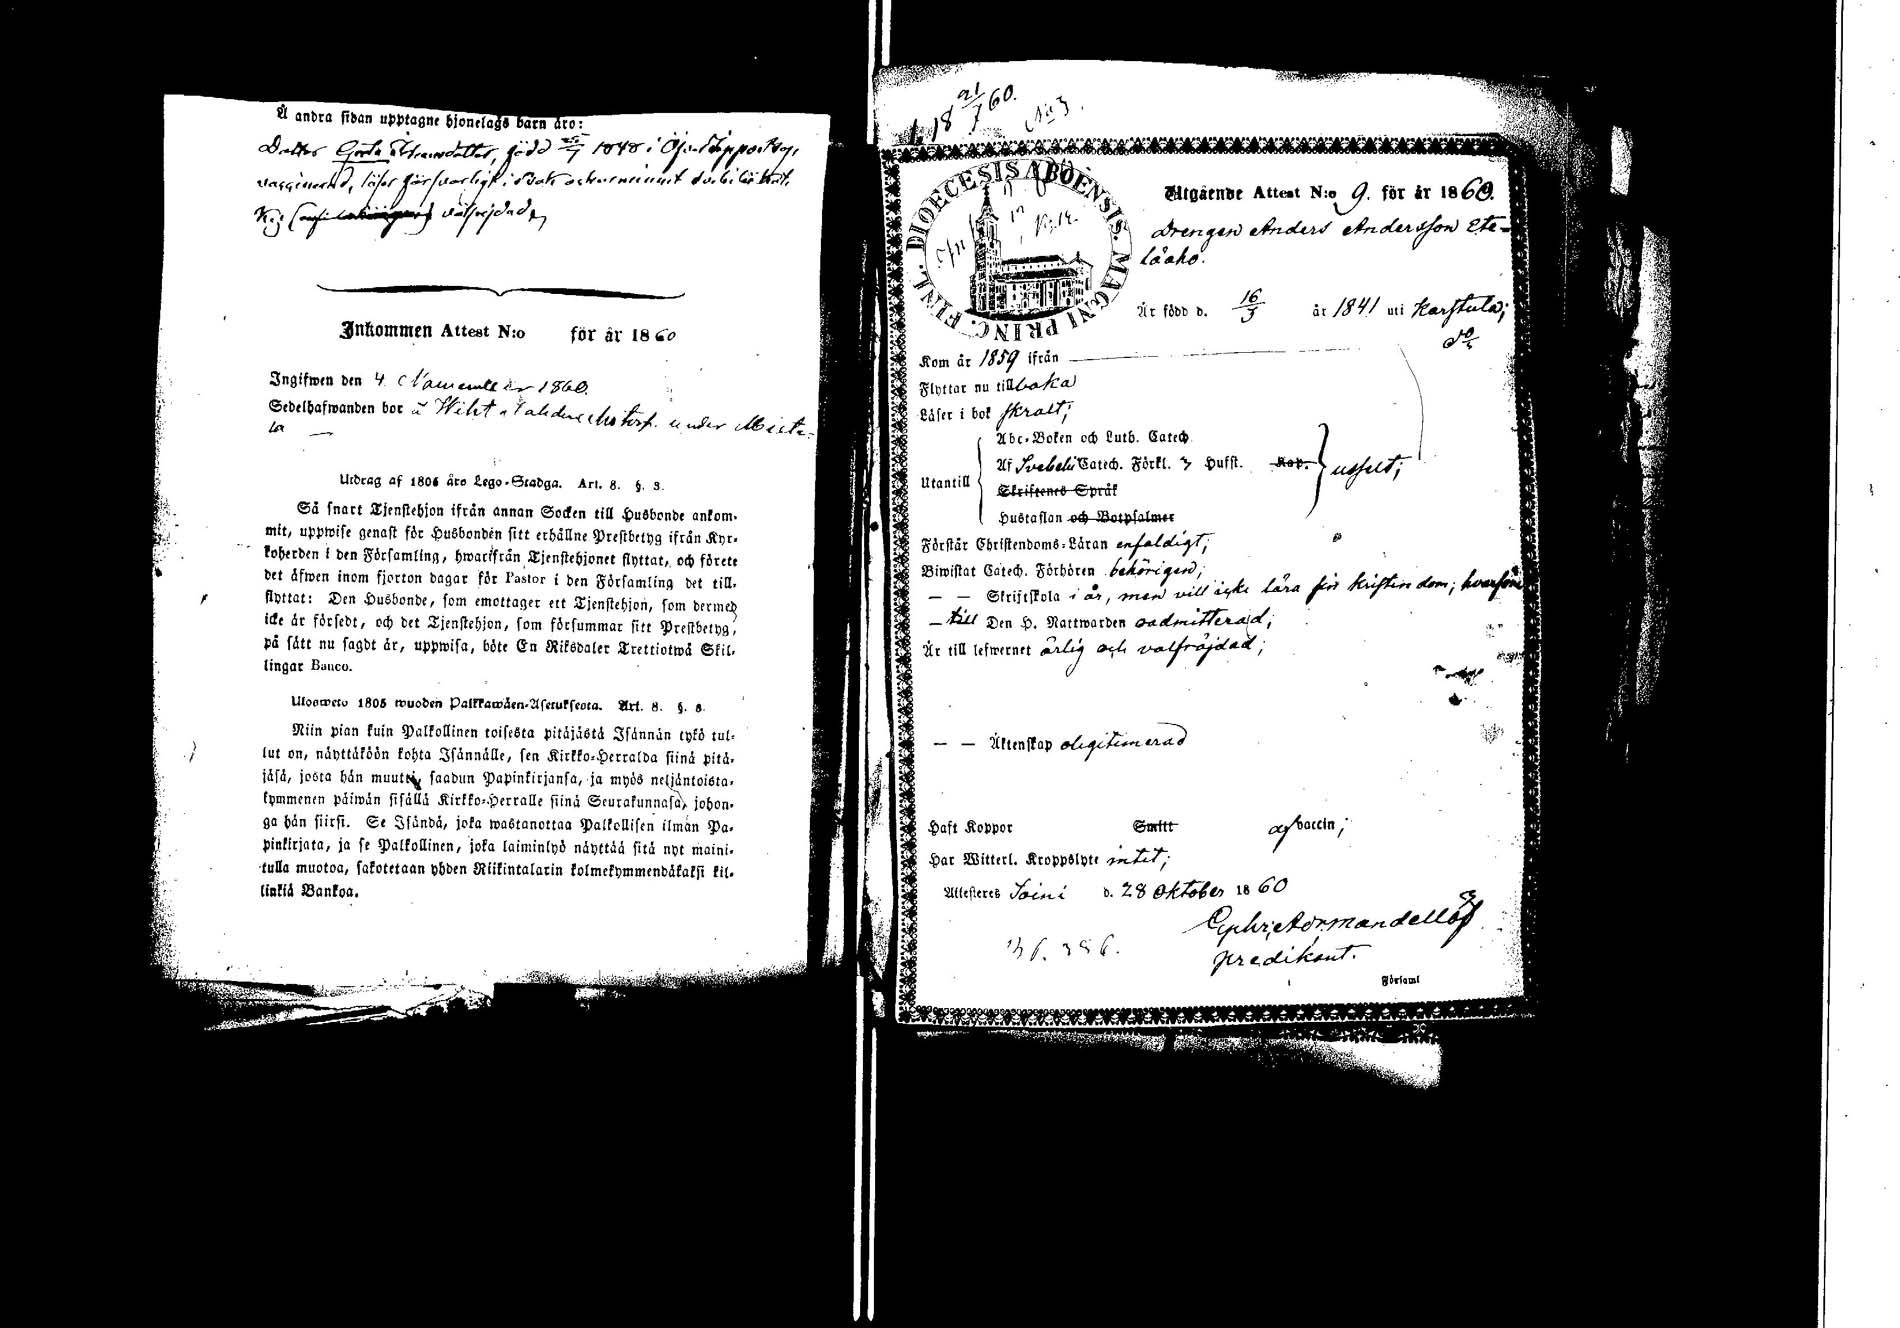 Å andra sidan upptagne hjonelags barn äro:
Dotter Greta
Inkommen Attest N:o för år 1860
Ingifwen den 4. November 1860.
Sedelhafwanden bor å under
Utdrag af 1805 års Lego-Stadga. Art. 8. §. 3.
Så snart Tjenstehjon ifrån annan Socken till Husbonde ankom-
mit, uppwise genast för Husbonden sitt erhållne Prestbetyg ifrån Kyr-
koherden i den Församling, hwarifrån Tjenstehjonet flyttat, och förete
det äfwen inom fjorton dagar för Pastor i den Församling det till-
flyttat: Den Husbonde, som emottager ett Tjenstehjon, som dermed
icke är försedt, och det Tjenstehjon, som försummar sitt Prestbetyg,
på sätt nu sagdt är, uppwisa, böte En Riksdaler Trettiotwå Skil-
lingar Banco.
Ulosweto 1805 wuoden Palkkawäen-Asetuksesta. Art. 8. §. 3.
Niin pian kuin Palkollinen toisesta pitäjästä Isännän tykö tul-
lut on, näyttäköön kohta Isännälle, sen Kirkko-Herralda siinä pitä-
jäsä, josta hän muutti, saadun Papinkirjansa, ja myös neljäntoista-
kymmenen päiwän sisällä Kirkko-Herralle siinä Seurakunnasa, johon-
ga hän siirsi. Se Isändä, joka wastanottaa Palkollisen ilman Pa-
pinkirjata, ja se Palkollinen, joka laiminlyö näyttää sitä nyt maini-
tulla muotoa, sakotetaan yhden Riikintalarin kolmekymmendäkaksi kil-
linkiä Bankoa.
18 21/7 60.
N:o 3.
DIOECESIS ABOËNSIS. MAGNI PRINC. FINL.
Utgående Attest N:o 9. för år 1860.
Drengen Anders Andersson Ete-
läaho.
Är född d. 16/3 år 1841 uti Karstula;
Kom år 1859 ifrån d:o
Flyttar nu tillbaka
Läser i bok skralt;
Abc-Boken och Luth. Catech.
Utantill Af Svebelii Catech. Förkl. 3 Hufst. Kap. usselt;
Skriftenes Språk
Hustaflan och Botpsalmer
Förstår Christendoms-Läran enfaldigt;
Biwistat Catech. Förhören behörigen;
— — Skriftskola i år, men vill icke lära sin kristindom; hvarföre
— till Den H. Nattwarden oadmitterad;
Är till lefwernet ärlig och välfräjdad;
— — Äktenskap olegitimerad
Haft Koppor Smitt af vaccin;
Har Witterl. Kroppslyte intet;
Attesteras Soini d. 28 Oktober 1860
predikant.
Församl